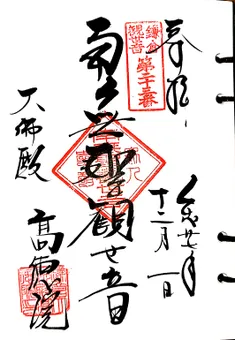 奉拝
鎌倉
観音
第二十三番
南無聖観世音
十二月一日
大佛殿
高徳院